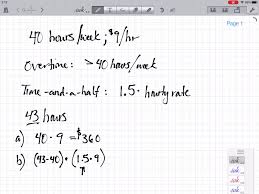 Page 1
40 hours/week, $9/hr
Overtime: >40 hours/week
Time-and-a-half: 1.5 · hourly rate
43 hours
a) 40 · 9 = $360
b) (43-40) · (1.5 · 9)